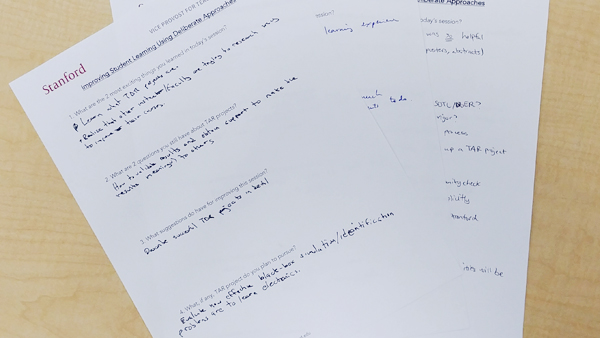 VICE PROVOST FOR TEA
Stanford
Improving Student Learning Using Deliberate Approaches
1. What are the 2 most exciting things you learned in today's session?
Learn what TAR projects are.
Realize that other instructors/faculty are trying to research ways
to improve their courses.
2. What are 2 questions you still have about TAR projects?
How to validate results and obtain support to make the
results meaningful to others.
3. What suggestions do have for improving this session?
Provide successful TAR projects in detail.
4. What, if any, TAR project do you plan to pursue?
Evaluate how effective black-box simulation/identification
problems are to learn electronics.
session?
learning experience
to do
Approaches
today's session?
was helpful
posters, abstracts)
SOTL/DBER?
rigor?
process
up a TAR project
Stanford
will be